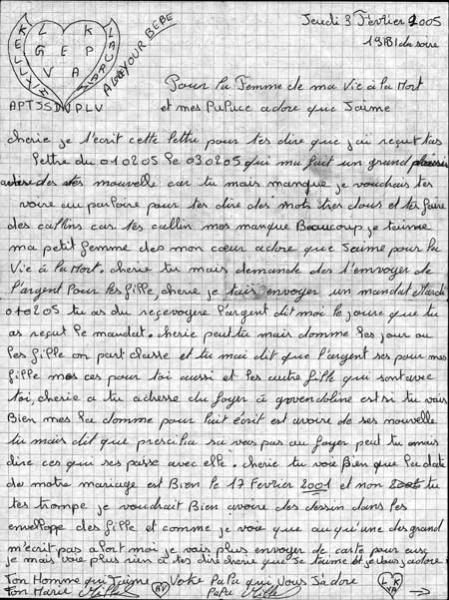 Jeudi 3 Février 2005
19H31 du soire
KELLY
L K
G E P
V A
ALWAYS YOUR BEBE
APTJSSDVPLV
Pour la Femme de ma Vie à la Mort
et mes Pupuce adore que J'aime
cherie je t'ecrit cette lettre pour tes dire que j'ai reçut tas
lettre du 010205 le 030205 qui ma fait un grand plaisir
des mouvelle car tu mais manque je voudrais tes
voire au parloire pour tes dire des mots tres doux et tes faire
des callins car tes callin mos manque Beaucoup je t'aime
ma petit femme des mon cœur adore que J'aime pour la
Vie à la Mort. cherie tu mais demande des l'emvoyer de
l'argent Pour les fille, cherie je t'ais envoyer un mandat Mardi
010205 tu as du reçevoyere l'argent dit moi le joure que tu
as reçut le mandat. cherie peut tu mais domme les jour ou
les fille on part classe et tu mai dit que l'argent ses pour mes
fille mes ces pour toi aussi et les autre fille qui sont avec
toi, cherie a tu adresse du foyer à gwendoline est si tu vais
Bien mes la domme pour luit écrit est avoire de ses nouvelle
tu mais dit que prescilia sa vas pas au foyer peut tu mais
dire ces qui ses passe avec elle. cherie tu voie Bien que la date
de motre mariage est Bien le 17 Fevrier 2001 et non tu
tes trompe je voudrait Bien avoire des dessin dans les
enveloppe des fille et comme je voie que au qu'une des grand
m'ecrit pas a part moi je vais plus envoyer de carte pour eux,
je mais voie plus rien a tes dire cherie que Je t'aime et je vous j'adore
Ton Homme qui J'aime Votre PaPa qui Vous J'adore
Ton Marie Papa